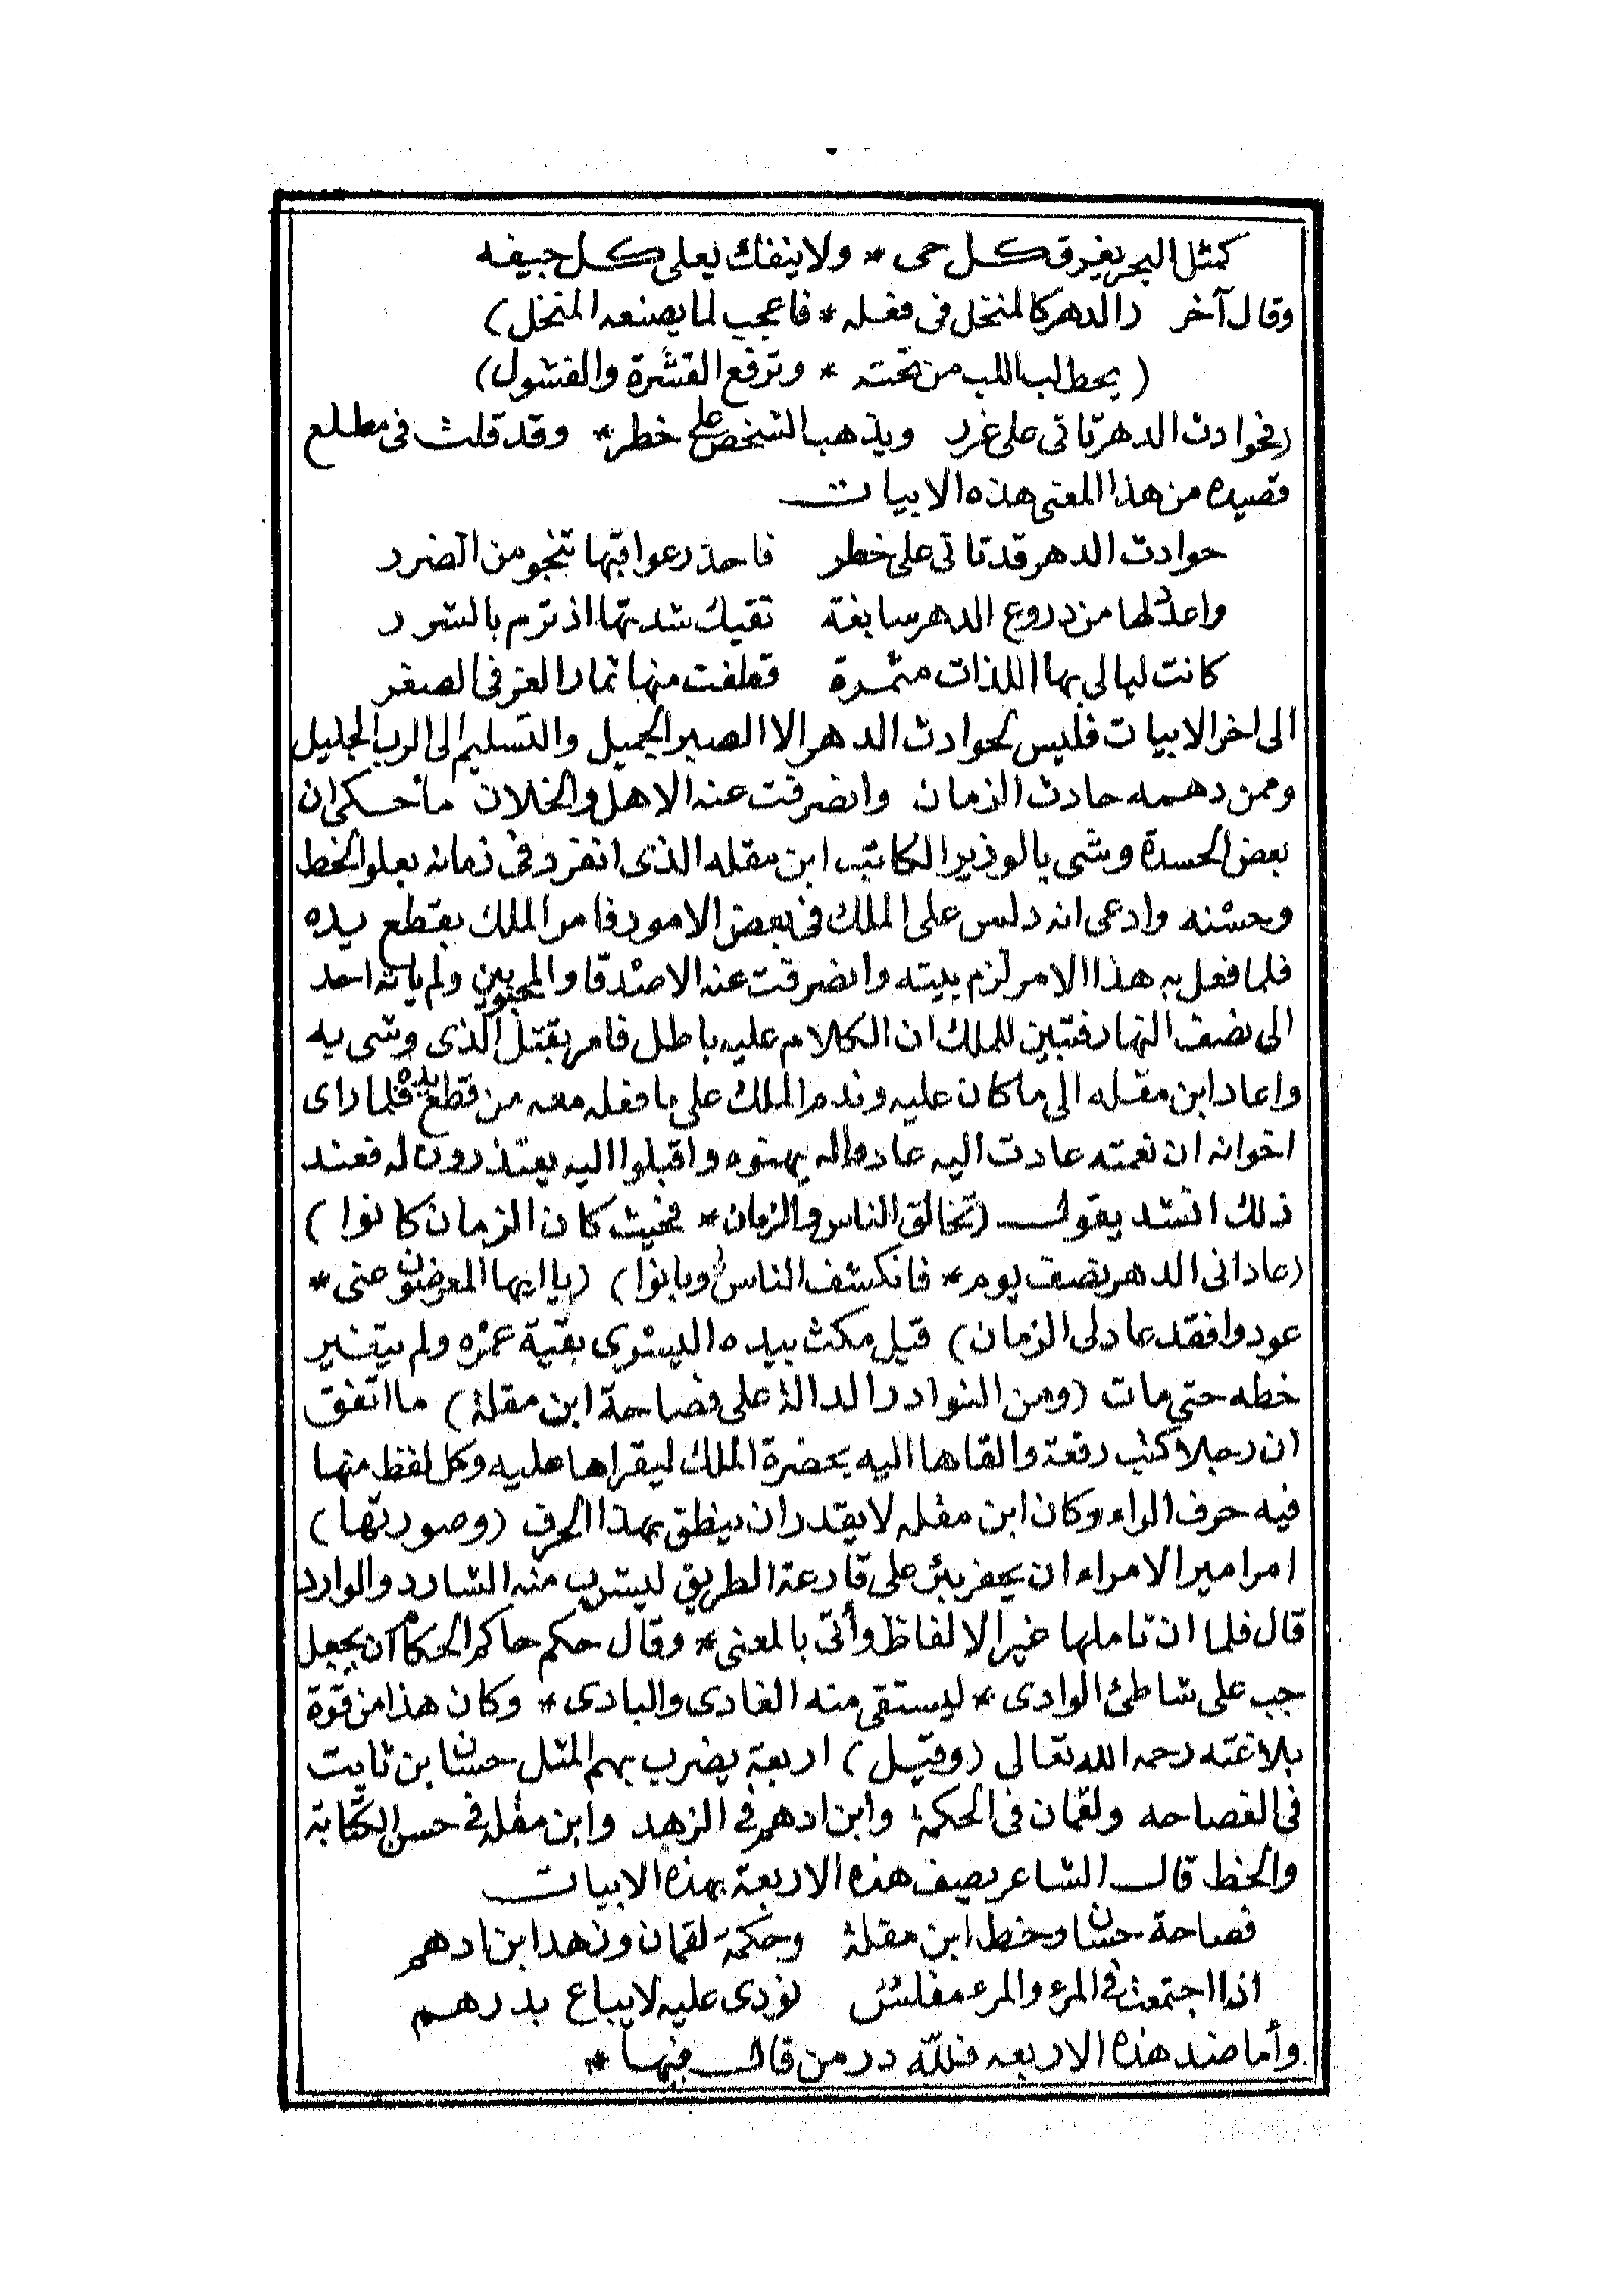 كمثل البحر يغرق كل حى * ولا ينفك يعلى كل جيفه
وقال آخر (الدهر كالمنخل فى فعله * فاعجب لما يصنعه المنخل)
(يحط لب اللب من تحته * وترفع القشرة والفشول)
(فحوادث الدهر تاتى على غرر ويذهب الشخص على خطر * وقد قلت فى مطلع
قصيده من هذا المعنى هذه الابيات
حوادث الدهر قد تاتى على خطر فاحذر عواقبها تنجو من الضرر
واعدد لها من دروع الدهر سابغة تقيك شدتها اذ ترم بالشرر
كانت ليالى بها اللذات مثمرة قطفت منها ثمار العز فى الصغر
الى اخر الابيات فليس لحوادث الدهر الا الصبر الجميل والتسليم الى الرب الجليل
وممن دهمه حادث الزمان وانصرفت عنه الاهل والخلان ما حكى ان
بعض الحسدة وشى بالوزير الكاتب ابن مقله الذى انفرد فى زمانه بعلو الخط
وحسنه وادعى انه دلس على الملك فى بعض الامور فامر الملك بقطع يده
فلما فعل به هذا الامر لزم بيته وانصرفت عنه الاصدقا والمحبون ولم ياته احد
الى نصف النهار فتبين للملك ان الكلام عليه باطل فامر بقتل الذى وشى به
واعاد ابن مقله الى ما كان عليه وندم الملك على ما فعله معه من قطع يده فلما راى
اخوانه ان نعمته عادت اليه عادوا له يهنوه واقبلوا اليه يعتذرون له فعند
ذلك انشد يقول (تخالق الناس والزمان * فحيث كان الزمان كانوا)
(عادانى الدهر نصف يوم * فانكشف الناس لى وبانوا) (يا ايها المعرضون عنى *
عودوا فقد عاد لى الزمان) قيل مكث بيده اليسرى بقية عمره ولم يتغير
خطه حتى مات (ومن النوادر الدالة على فصاحة ابن مقلة) ما اتفق
ان رجلا كتب رقعة والقاها اليه بحضرة الملك ليقراها عليه وكل لفظ منها
فيه حرف الراء وكان ابن مقله لا يقدر ان ينطق بهذا الحرف (وصورتها)
امر امير الامراء ان يحفر بئر على قارعة الطريق ليشرب منه الشارد والوارد
قال فلما ان تاملها غير الالفاظ وأتى بالمعنى * وقال حكم حاكم الحكام أن يجعل
جب على شاطئ الوادى * ليستقى منه الغادى والبادى * وكان هذا من قوة
بلاغته رحمه الله تعالى (وقيل) اربعة يضرب بهم المثل حسان ابن ثابت
فى الفصاحه ولقمان فى الحكمة وابن ادهم فى الزهد وابن مقله فى حسن الكتابة
والخط قال الشاعر يصف هذه الاربعة بهذه الابيات
فصاحة حسان وخط ابن مقلة وحكمة لقمان وزهد ابن ادهم
اذا اجتمعت فى المرء والمرء مفلس نودى عليه لا يباع بدرهم
وأما ضد هذه الاربعه فلله در من قال فيها *